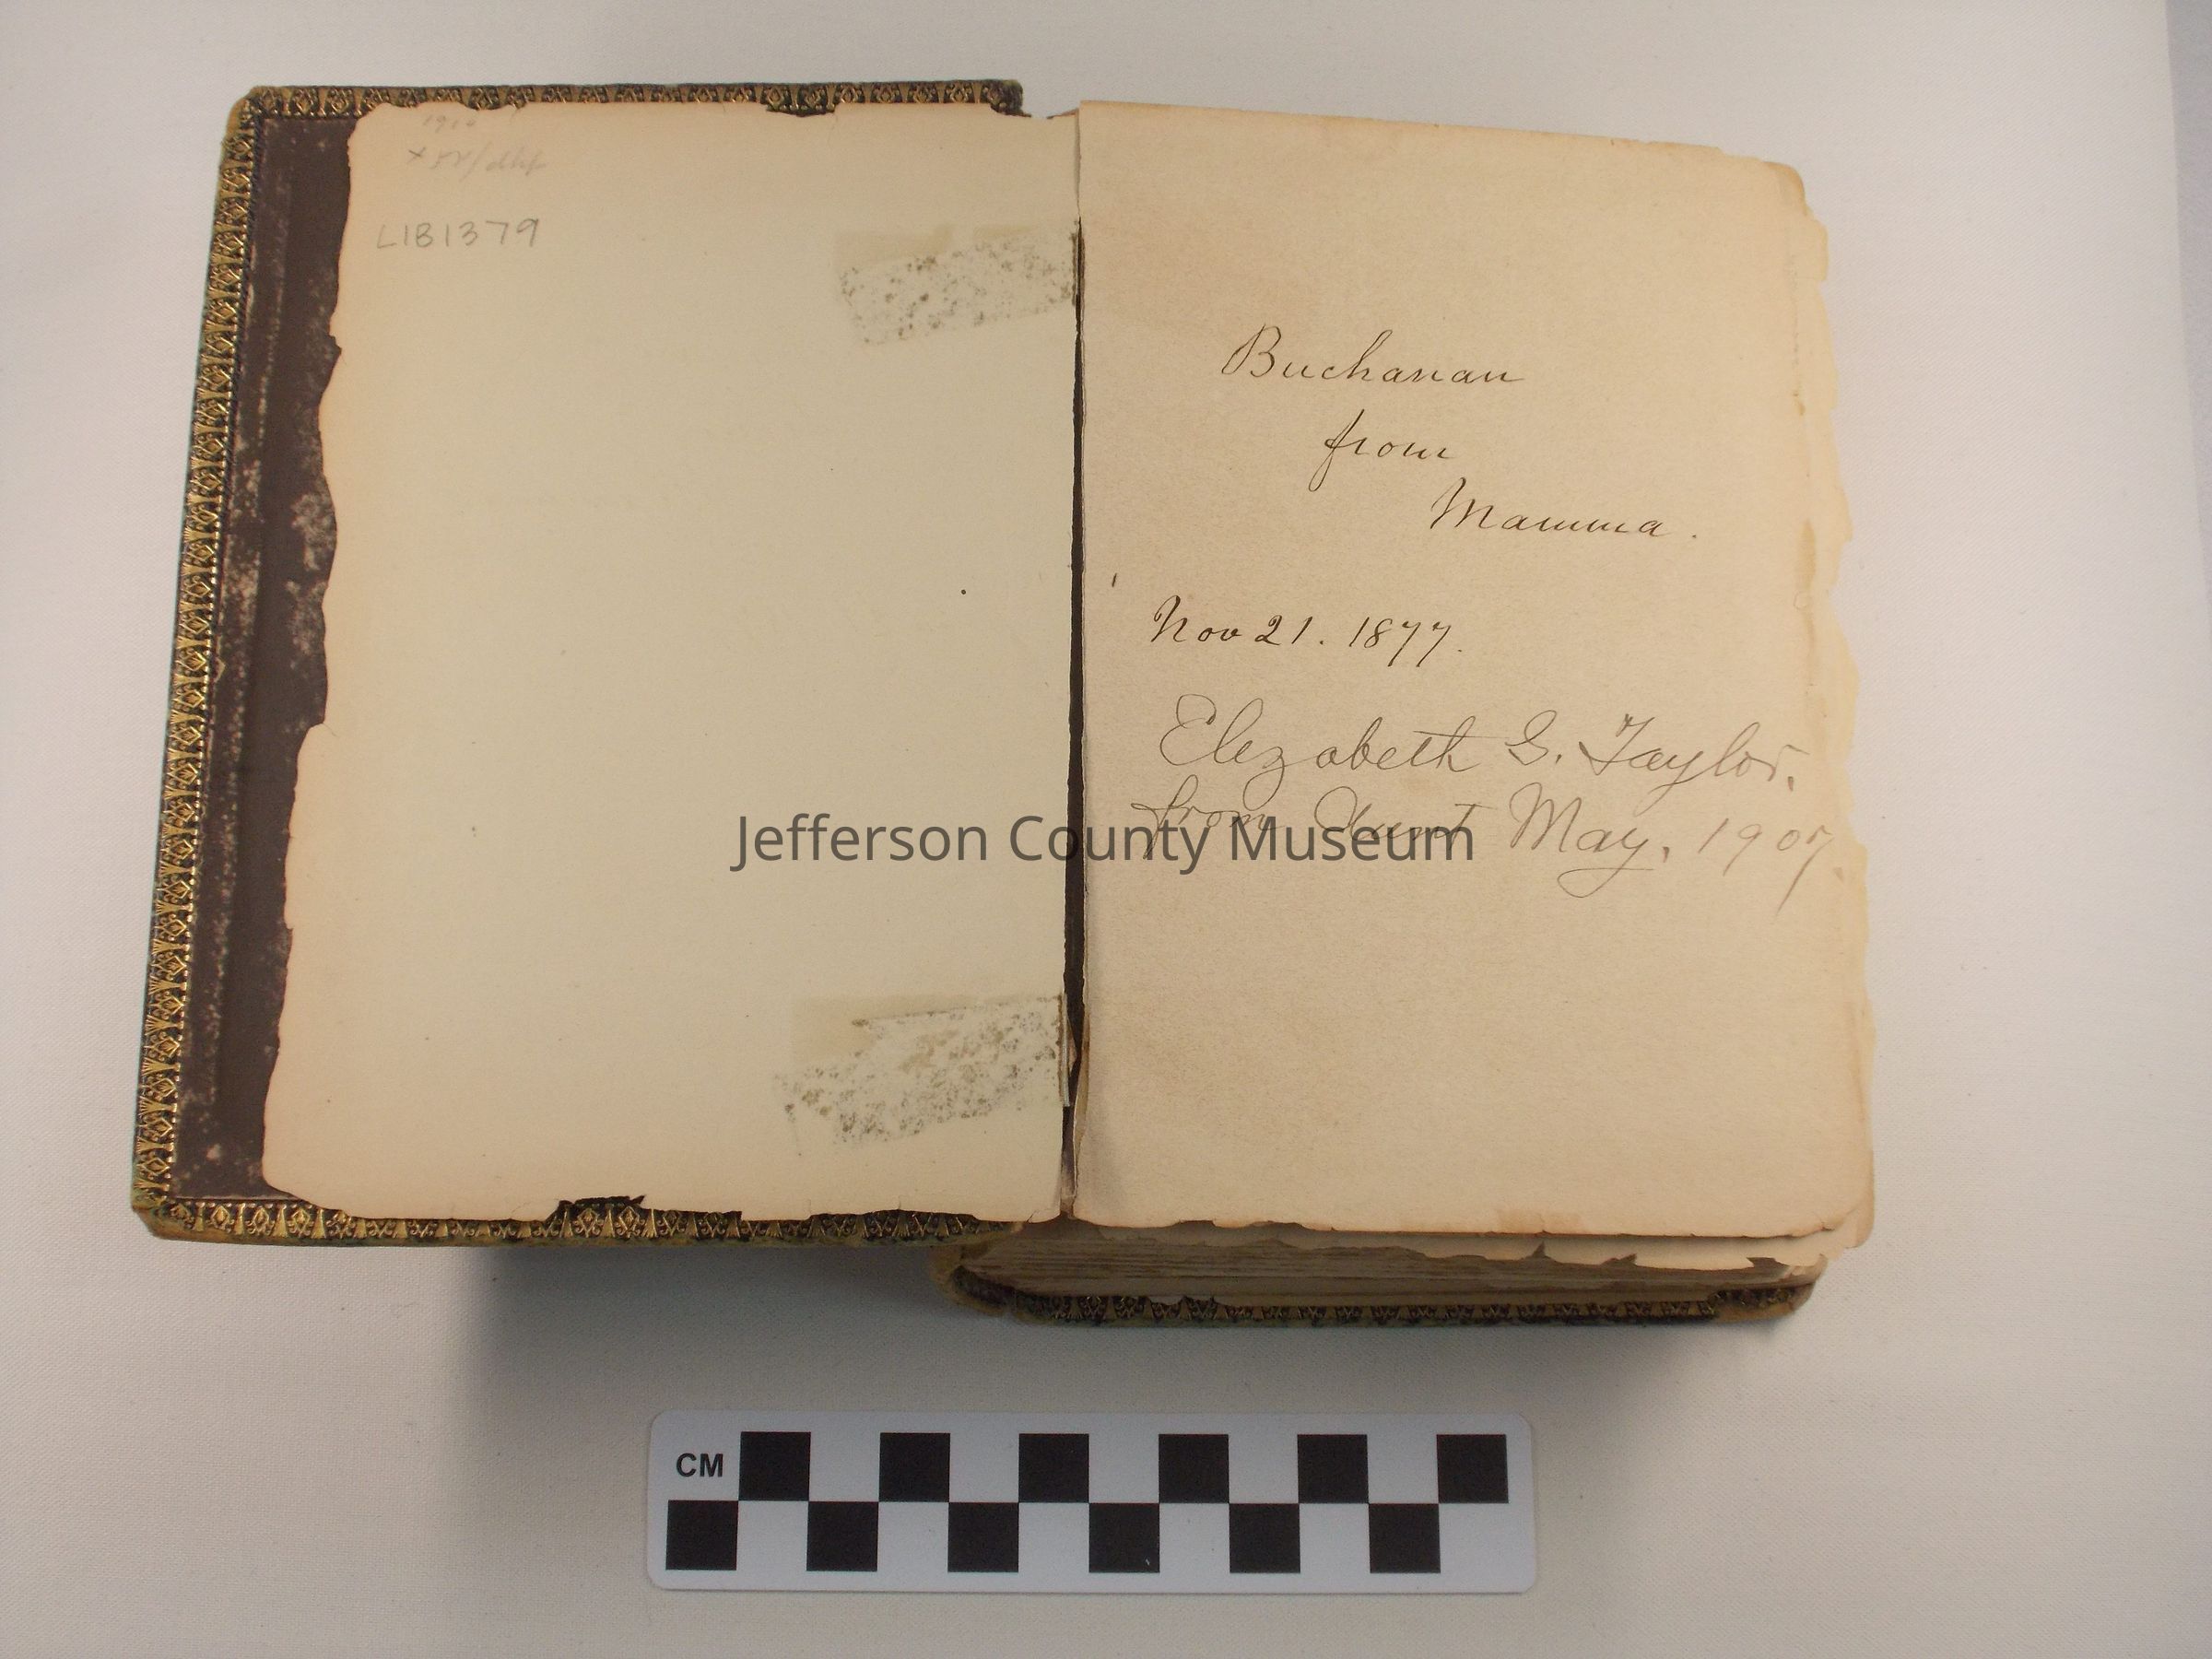 LIB1379
Buchanan
from
Mamma.
Nov 21. 1877.
Elizabeth G. Taylor.
from Aunt May, 1907.
Jefferson County Museum
CM